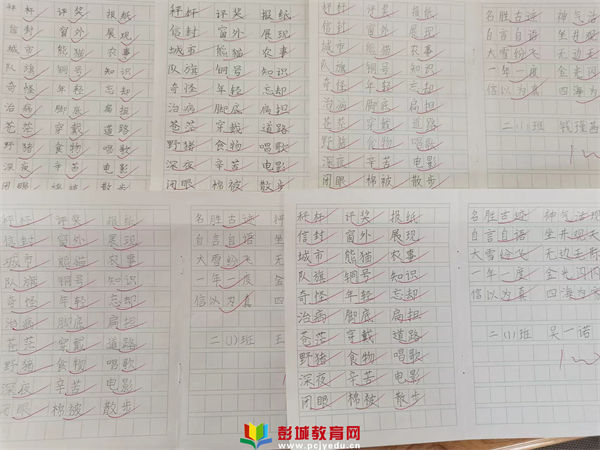 秤杆 评奖 报纸
信封 窗外 展现
城市 熊猫 农事
队旗 铜号 知识
奇怪 年轻 忘却
治病 脚底 扁担
苍茫 穿戴 道路
野猪 食物 唱歌
深夜 辛苦 电影
闭眼 棉被 散步
秤杆 评奖 报纸
信封 窗外 展现
城市 熊猫 农事
队旗 铜号 知识
奇怪 年轻 忘却
治病 脚底 扁担
苍茫 穿戴 道路
野猪 食物 唱歌
深夜 辛苦 电影
闭眼 棉被 散步
秤杆 评奖 报纸
信封 窗外 展现
城市 熊猫 农事
队旗 铜号 知识
奇怪 年轻 忘却
治病 脚底 扁担
苍茫 穿戴 道路
野猪 食物 唱歌
深夜 辛苦 电影
闭眼 棉被 散步
名胜古迹 神气
自言自语 坐井观
大雪纷飞 无边无
一年一度 金光闪
信以为真 四海为
二(1)班
秤杆 评奖 报纸
信封 窗外 展现
城市 熊猫 农事
队旗 铜号 知识
奇怪 年轻 忘却
治病 脚底 扁担
苍茫 穿戴 道路
野猪 食物 唱歌
深夜 辛苦 电影
闭眼 棉被 散步
名胜古迹
自言自语 坐
大雪纷飞 无
一年一度 金
信以为真 四
二(1)班
秤杆 评奖 报纸
信封 窗外 展现
城市 熊猫 农事
队旗 铜号 知识
奇怪 年轻 忘却
治病 脚底 扁担
苍茫 穿戴 道路
野猪 食物 唱歌
深夜 辛苦 电影
闭眼 棉被 散步
名胜古迹 神气活现
自言自语 坐井观天
大雪纷飞 无边无际
一年一度 金光闪闪
信以为真 四海为
二(1)班 吴一诺
彭城教育网
www.pcjyedu.cn